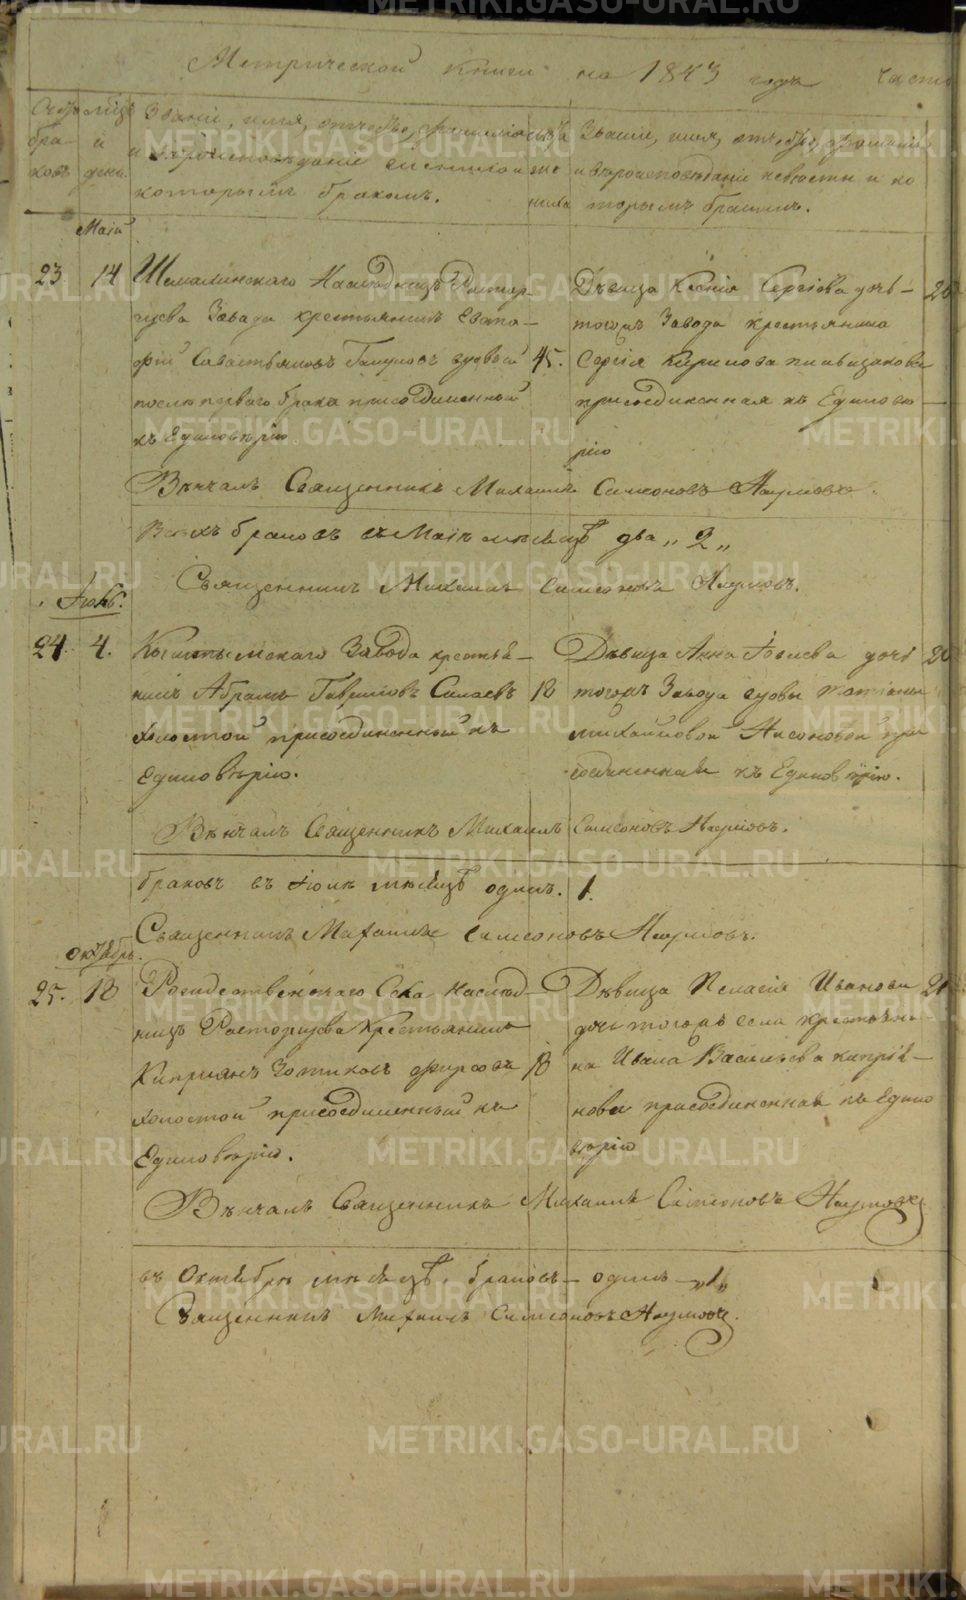 Метрической книги на 1843 годъ часть
Счетъ браковъ
мѣсяцъ и день
Званіе, имя, отчество, фамилія
и вѣроисповѣданіе жениха и
которымъ бракомъ.
лѣта жениха
Званіе, имя, отчество, фамилія
и вѣроисповѣданіе невѣсты и ко
торымъ бракомъ.
Маія
23 14 Шемахинскаго Наслѣдницъ Растор-
гуева Завода крестьянинъ
Савастьяновъ вдовый 45.
послѣ перваго брака присоединенный
къ Единовѣрію
Дѣвица Ксенія Сергіева дочь
тогожъ Завода крестьянина
Сергія Кирилова
присоединенная къ Единовѣ
рію
Вѣнчалъ Священникъ Михаилъ Симеоновъ Наумовъ.
Всѣхъ браковъ въ Маіѣ мѣсяцѣ два „2„
Священникъ Михаилъ Симеоновъ Наумовъ.
24. 4. Кыштымскаго Завода крестья-
нинъ Абрамъ Гавриловъ Силаевъ 18
холостой присоединенный къ
Единовѣрію.
Дѣвица Анна дочь
тогожъ Завода вдовы
Михайловой при
соединенная къ Единовѣрію.
Вѣнчалъ Священникъ Михаилъ Симеоновъ Наумовъ.
браковъ въ Іюнѣ мѣсяцѣ одинъ. 1.
Священникъ Михаилъ Симеоновъ Наумовъ.
Октябрь.
25. 18 Рождественскаго Села Наслѣд-
ницъ Расторгуева Крестьянинъ
Кипріянъ Зотиковъ Фирсовъ 18
холостой присоединенный къ
Единовѣрію.
Дѣвица Пелагія Иванова 21
дочь тогожъ села крестьяни-
на Ивана Васильева Капрія-
нова присоединенная къ Едино
вѣрію
Вѣнчалъ Священникъ Михаилъ Симеоновъ Наумовъ
въ Октябрѣ мѣсяцѣ браковъ одинъ „1„
Священникъ Михаилъ Симеоновъ Наумовъ.
METRIKI.GASO-URAL.RU